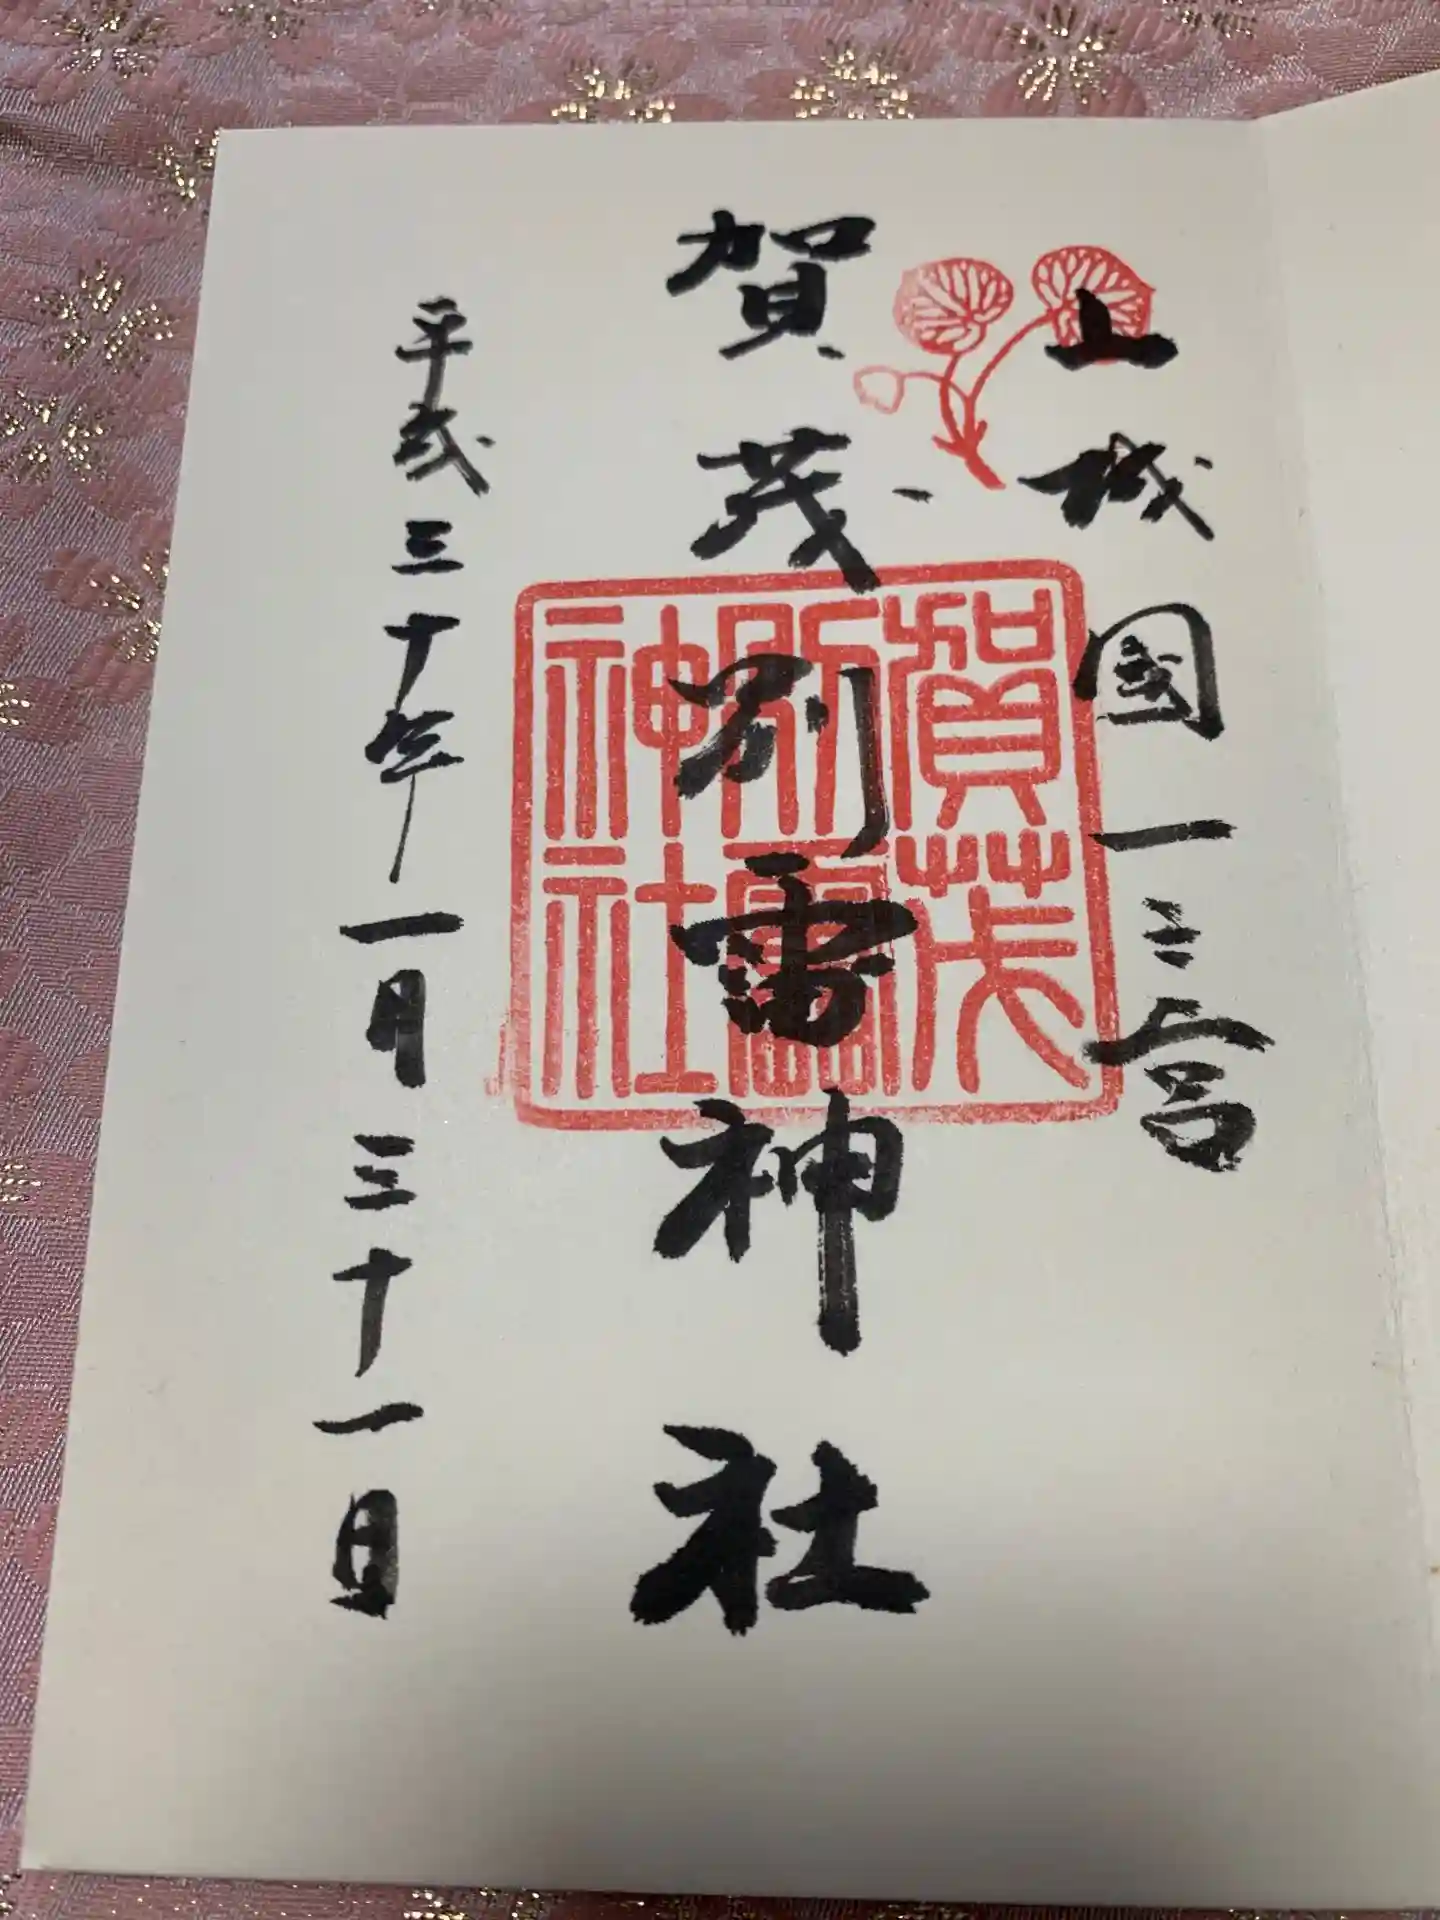 山城国一之宮
賀茂別雷神社
平成三十年一月三十一日
賀茂
別雷
神社